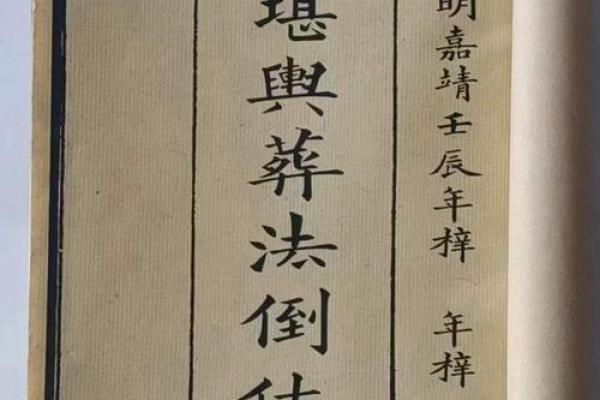 明嘉靖壬辰年梓 年梓
堪輿葬法倒